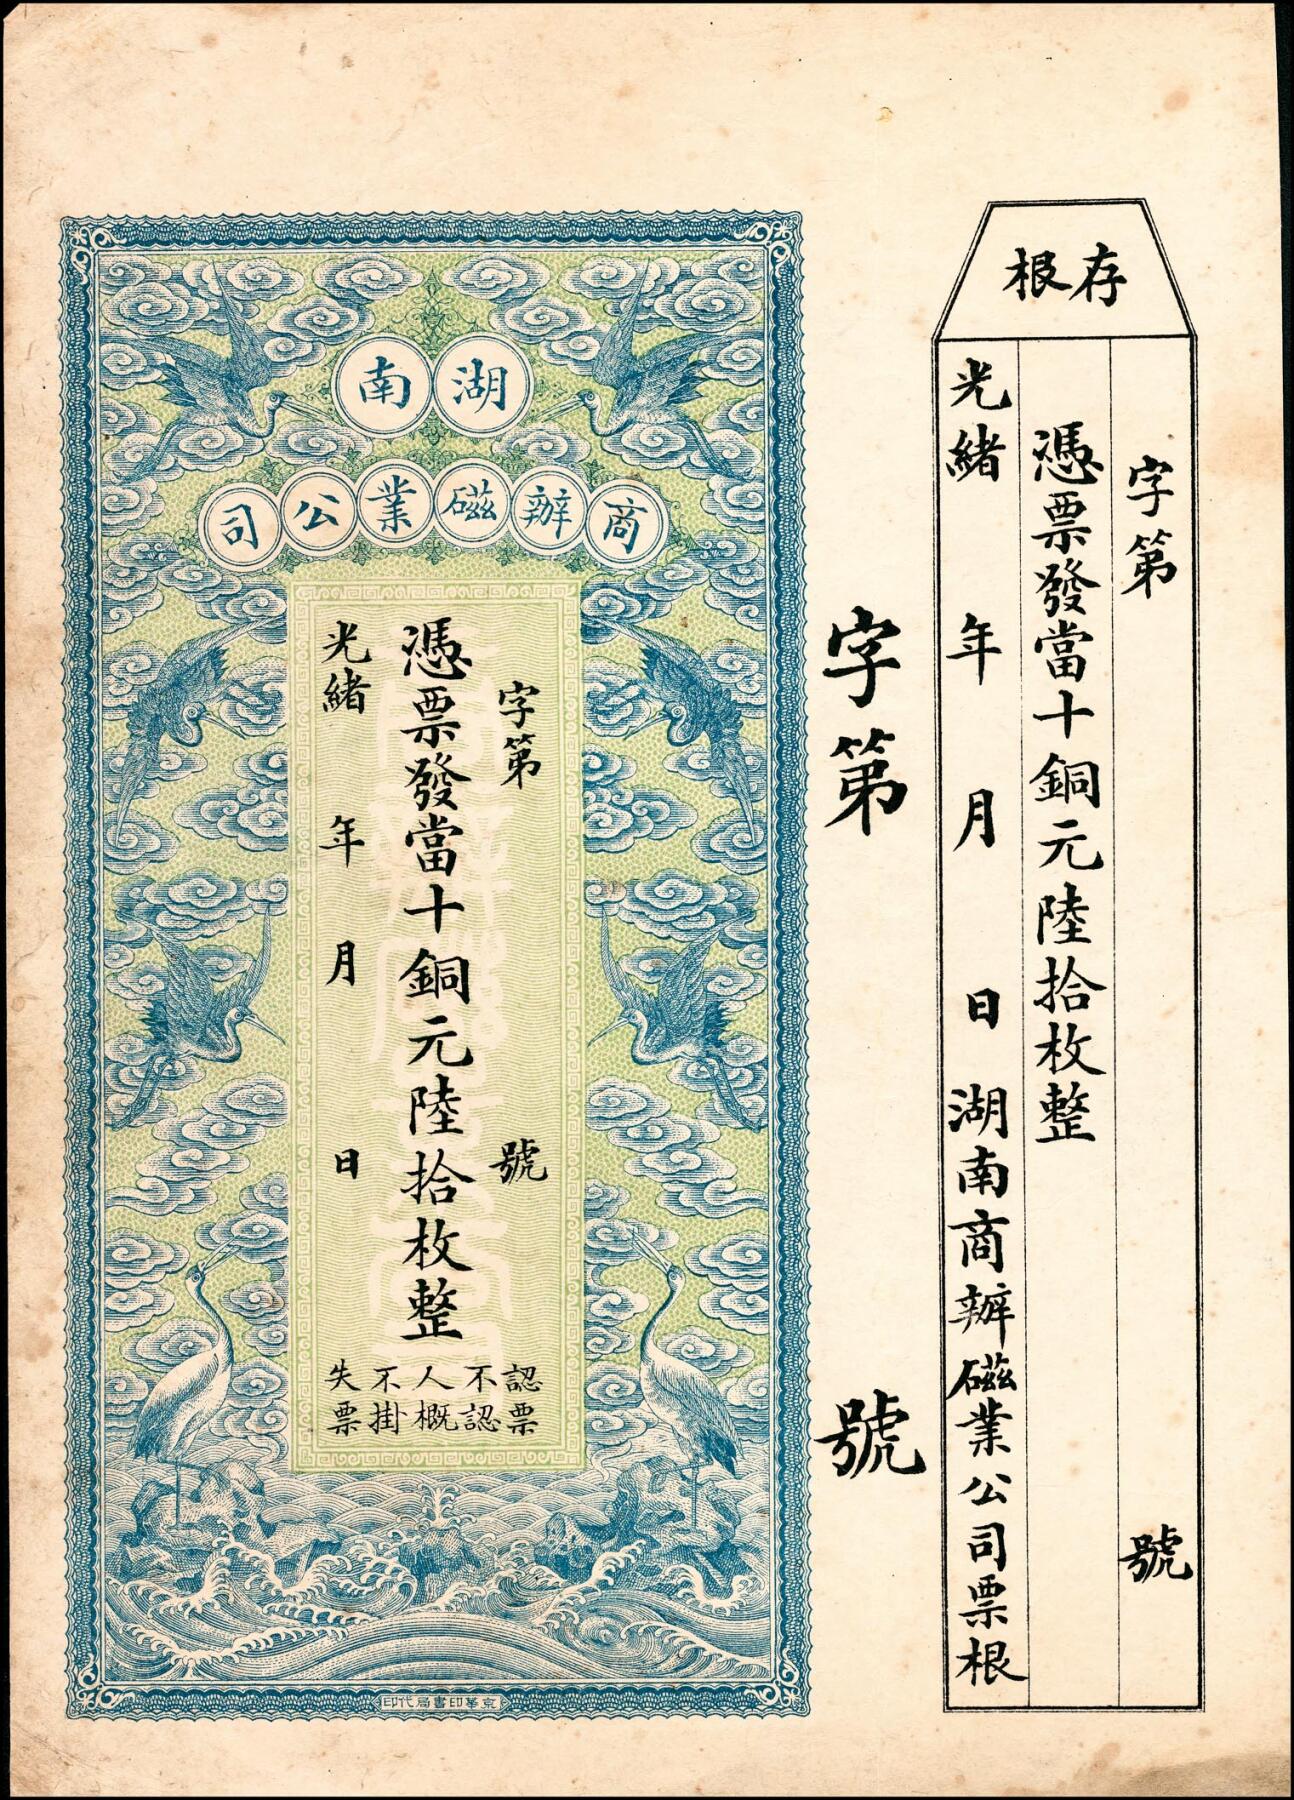 存根
字第 號
憑票發當十銅元陸拾枚整
光緒 年 月 日 湖南商辦磁業公司票根
字第 號
湖南
商辦磁業公司
字第 號
憑票發當十銅元陸拾枚整
光緒 年 月 日
認票
不認
人概
不掛
失票
京華印書局代印